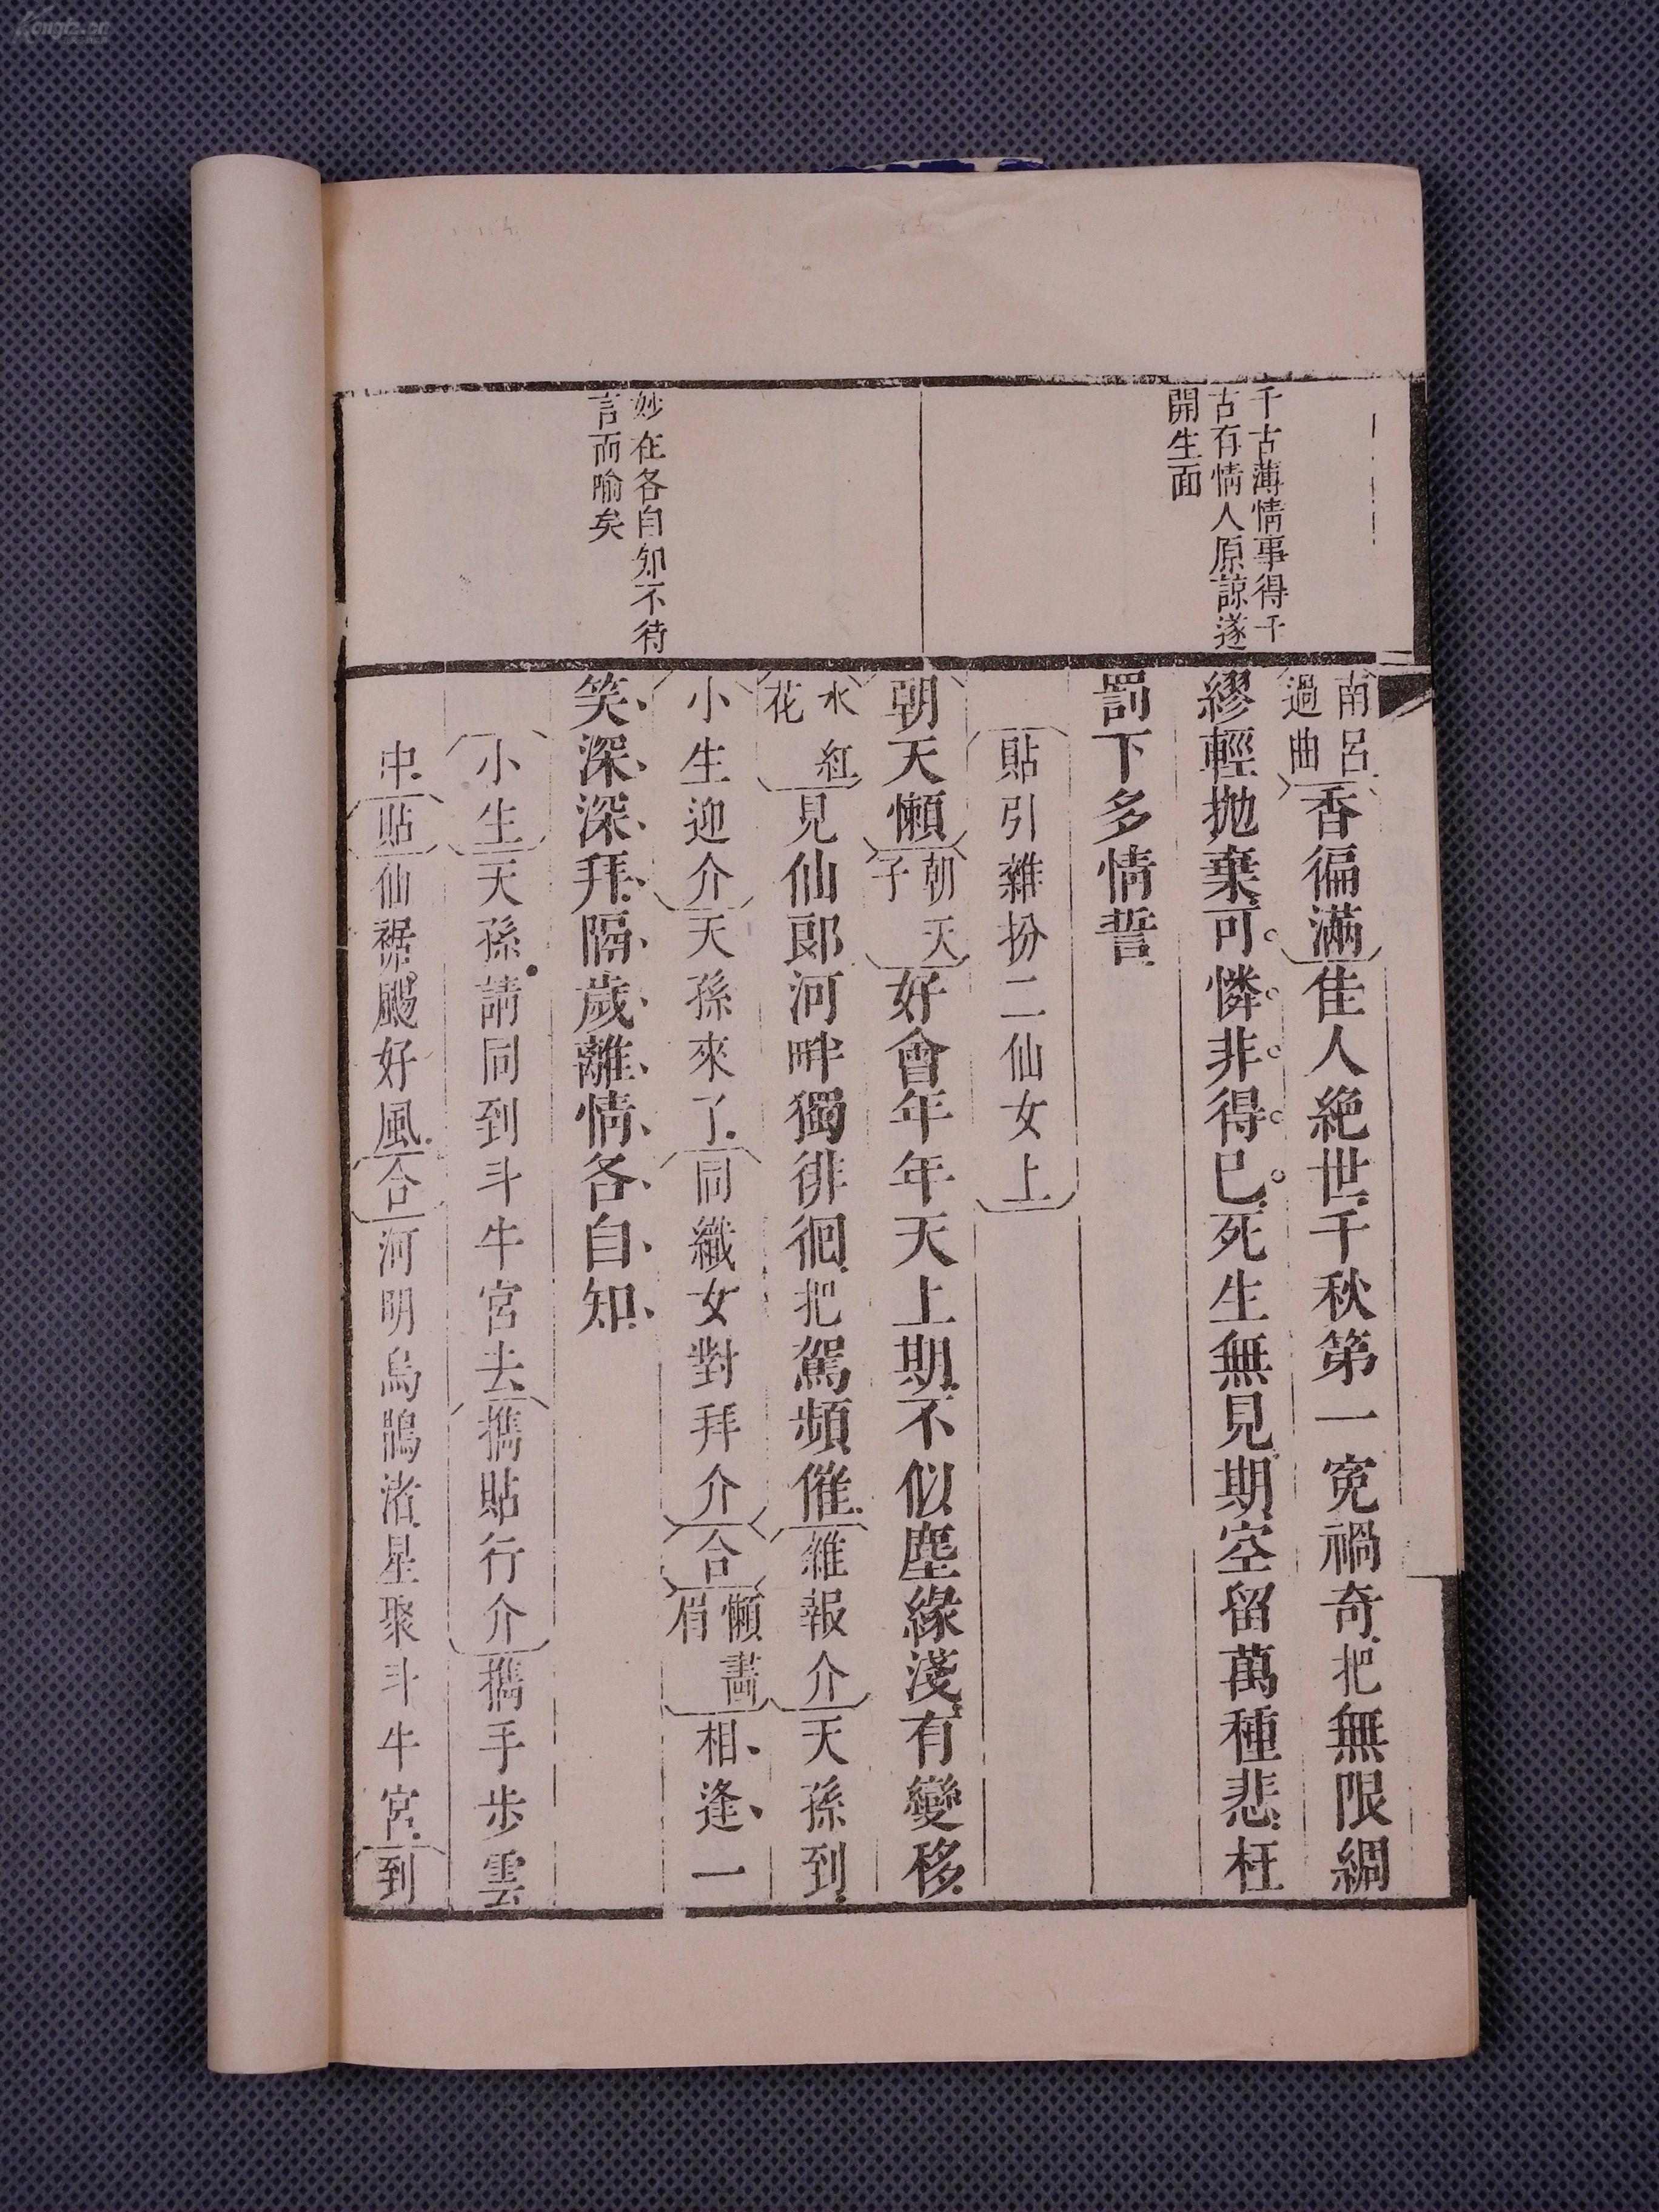 千古薄情事得千
古有情人原諒遂
開生面
妙在各自知不待
言而喻矣
南呂過曲香徧滿佳人絶世千秋第一寃禍奇把無限綢
繆輕拋棄可憐非得已死生無見期空留萬種悲枉
罰下多情誓
貼引雜扮二仙女上
朝天懶朝天子好會年年天上期不似塵緣淺有變移
水紅花見仙郞河畔獨徘徊把駕頻催雜報介天孫到
小生迎介天孫來了同織女對拜介合懶畫眉相逢一
笑深深拜隔歲離情各自知
小生天孫請同到斗牛宮去攜貼行介攜手步雲
中貼仙裾颺好風合河明烏鵲渚星聚斗牛宮到
Kongfz.cn